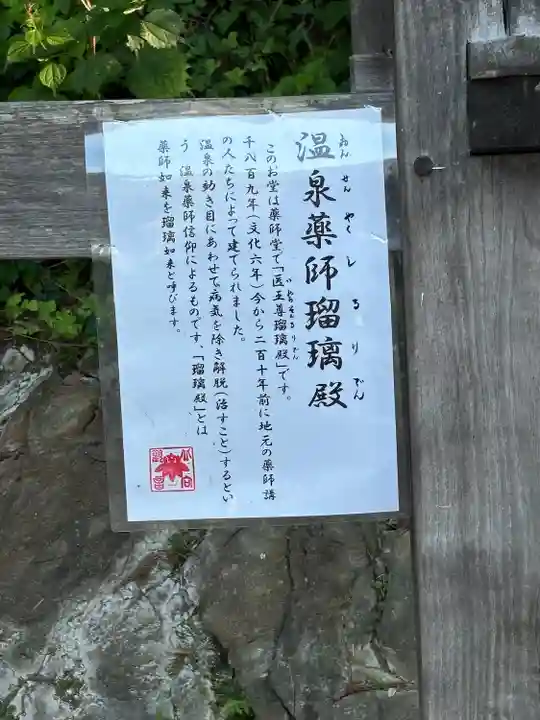 温泉薬師瑠璃殿
おんせんやくしるりでん
このお堂は薬師堂で「医王尊瑠璃殿」です。
千八百九年(文化六年)今から二百十年前に地元の薬師講
の人たちによって建てられました。
温泉の動き目にあわせて病気を除き解脱(治すこと)するとい
う 温泉薬師信仰によるものです、「瑠璃殿」とは
薬師如来を瑠璃如来と呼びます。